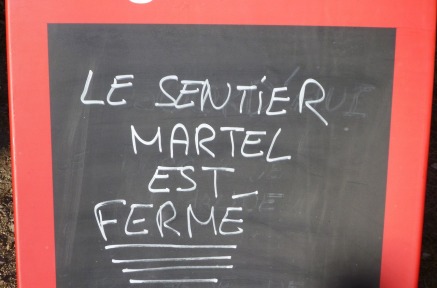 LE SENTIER
MARTEL
EST
FERMÉ